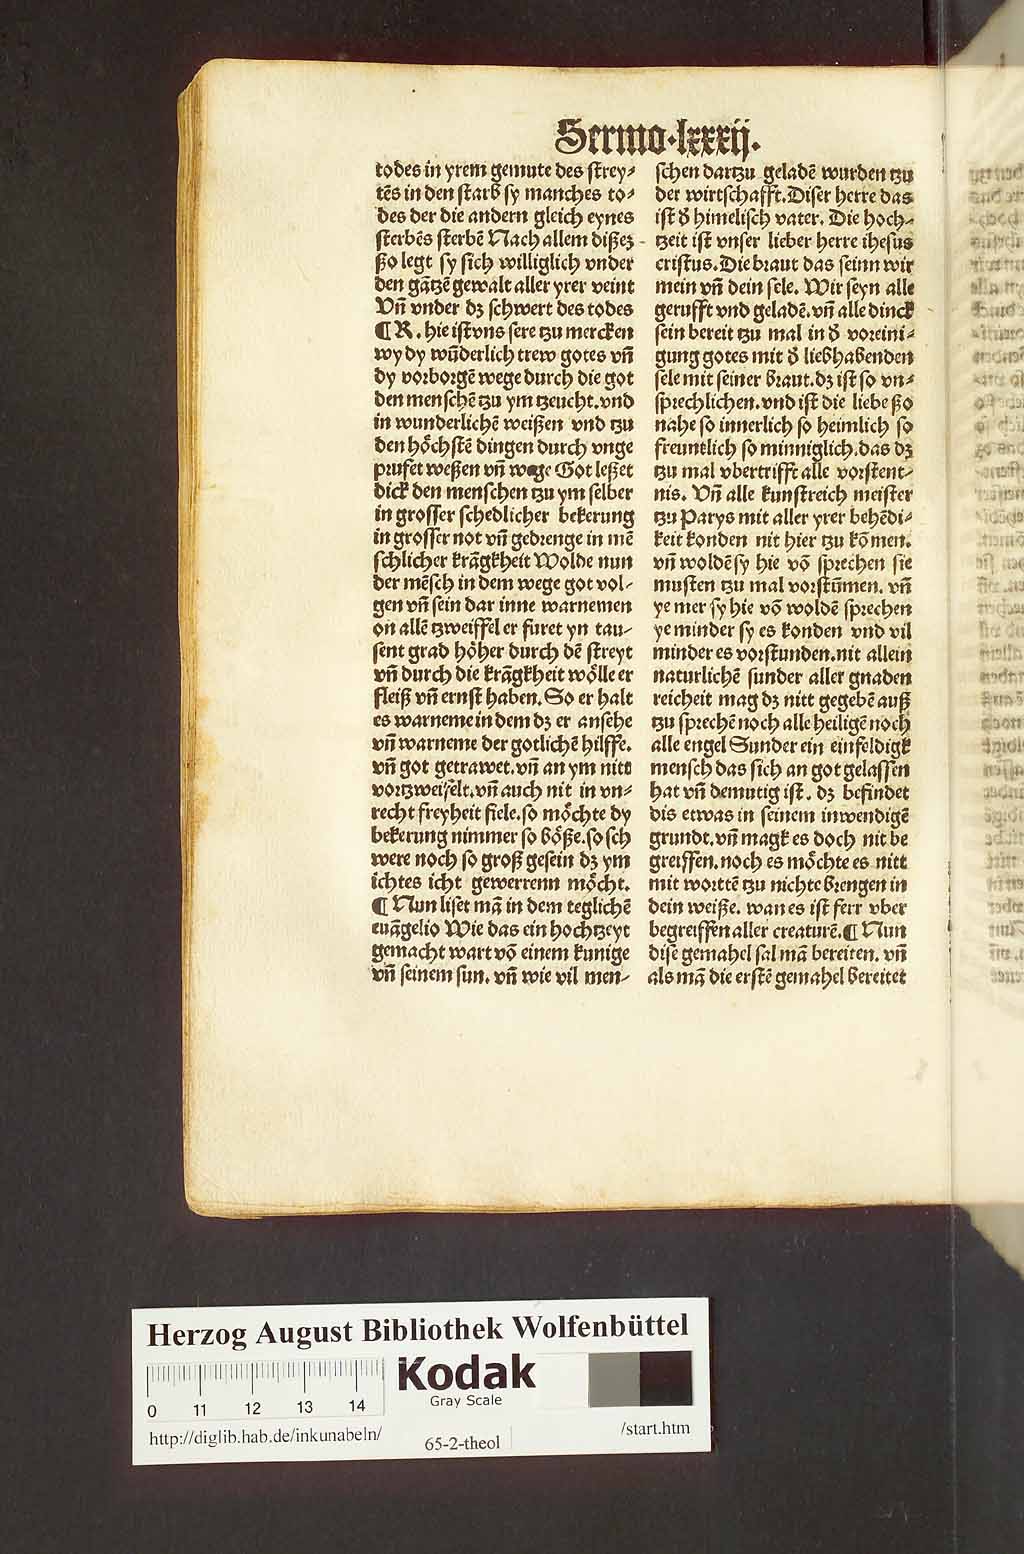 Sermo·lxxxij.
todes in yrem gemute des strey⸗
tēs in den starb sy manches to⸗
des der die andern gleich eynes
sterbēs sterbē Nach allem dißez
ßo legt sy sich williglich vnder
den gātzē gewalt aller yrer veint
Vn̄ vnder dz schwert des todes
¶ R. hie ist vns sere tzu mercken
wy dy wūderlich trew gotes vn̄
dy vorborgē wege durch die got
den menschē tzu ym tzeucht. vnd
in wunderlichē weißen vnd tzu
den hȯchstē dingen durch vnge
prufet weßen vn̄ wege Got leßet
dick den menschen tzu ym selber
in grosser schedlicher bekerung
in grosser not vn̄ gedrenge in mē
schlicher krāgkheit Wolde nun
der mēsch in dem wege got vol⸗
gen vn̄ sein dar inne warnemen
on allē tzweiffel er furet yn tau⸗
sent grad hȯher durch dē streyt
vn̄ durch die krāgkheit wȯlle er
fleiß vn̄ ernst haben. So er halt
es warneme in dem dz er ansehe
vn̄ warneme der gotlichē hilffe.
vn̄ got getrawet. vn̄ an ym nitt
vortzweifelt. vn̄ auch nit in vn⸗
recht freyheit fiele. so mȯchte dy
bekerung nimmer so bȯße. so sch
were noch so groß gesein dz ym
ichtes icht gewerrenn mȯcht.
¶ Nun liset mā in dem teglichē
euāgelio Wie das ein hochtzeyt
gemacht wart vō einem kunige
vn̄ seinem sun. vn̄ wie vil men⸗
schen dartzu geladē wurden tzu
der wirtschafft. Diser herre das
ist d̓ himelisch vater. Die hoch⸗
tzeit ist vnser lieber herre ihesus
cristus. Die braut das seinn wir
mein vn̄ dein sele. Wir seyn alle
gerufft vnd geladē. vn̄ alle dinck
sein bereit tzu mal in d̓ voreini⸗
gung gotes mit d̓ liebhabenden
sele mit seiner braut. dz ist so vn⸗
sprechlichen. vnd ist die liebe ßo
nahe so innerlich so heimlich so
freuntlich so minniglich. das dz
tzu mal vbertrifft alle vorstent⸗
nis. Vn̄ alle kunstreich meister
tzu Parys mit aller yrer behēdi⸗
keit konden nit hier tzu kōmen.
vn̄ woldē sy hie vō sprechen sie
musten tzu mal vorstūmen. vn̄
ye mer sy hie vō woldē sprechen
ye minder sy es konden vnd vil
minder es vorstunden. nit allein
naturlichē sunder aller gnaden
reicheit mag dz nitt gegebē auß
tzu sprechē noch alle heiligē noch
alle engel Sunder ein einfeldigk
mensch das sich an got gelassen
hat vn̄ demutig ist. dz befindet
dis etwas in seinem inwendigē
grundt. vn̄ magk es doch nit be
greiffen. noch es mȯchte es nitt
mit worttē tzu nichte brengen in
dein weiße. wan es ist ferr vber
begreiffen aller creaturē. ¶ Nun
dise gemahel sal mā bereiten. vn̄
als mā die erstē gemahel bereitet
Herzog August Bibliothek Wolfenbüttel
Kodak
Gray Scale
0 11 12 13 14
http://diglib.hab.de/inkunabeln/
65-2-theol
/start.htm